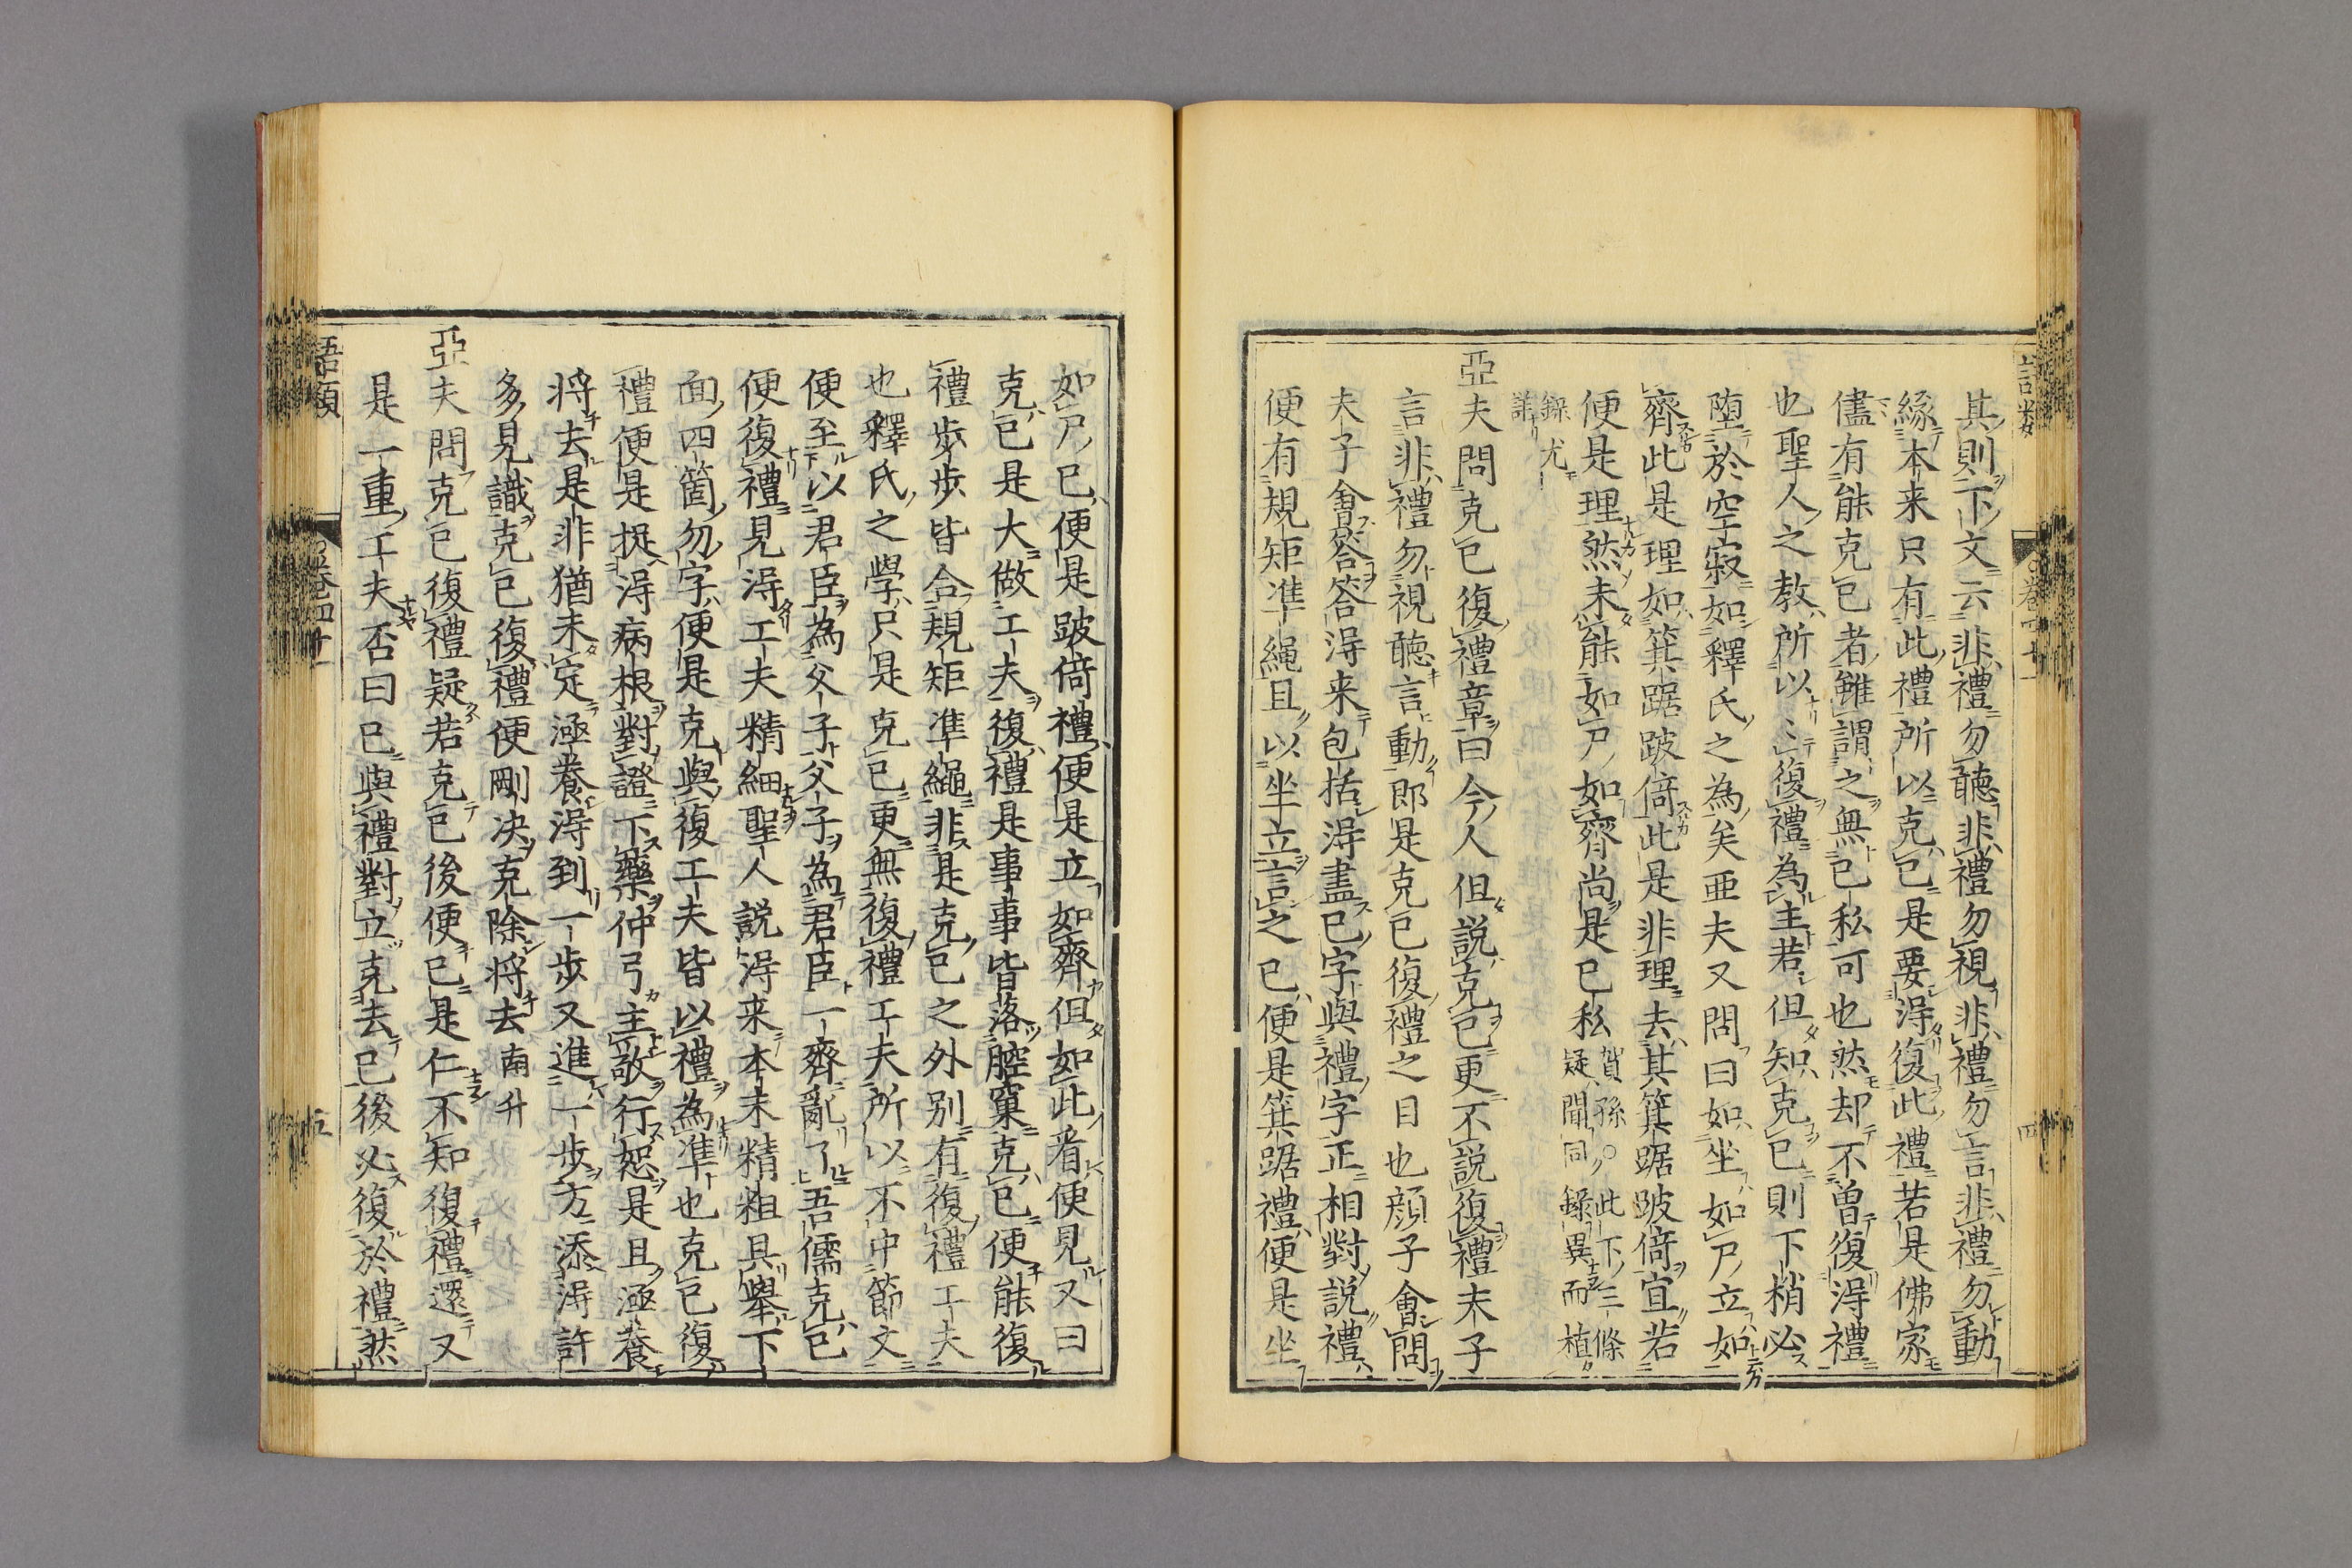 其則下文云非禮勿聽非禮勿視非禮勿言非禮勿動
緣本来只有此禮所以克已是要淂復此禮若是佛家
儘有能克已者雖謂之無已私可也然却不曽復淂禮
也聖人之教所以〻復禮為主若但知克已則下梢必
堕於空寂如釋氏之為矣亜夫又問曰如坐如尸立如
齊此是理如箕踞跛倚此是非理去其箕踞跛倚宜若
便是理然未能如尸如齊尚是已私
賀孫○此下三條
疑聞同録異而植
錄尤
詳
亞夫問克已復禮章曰今人但説克已更不説復禮夫子
言非禮勿視聽言動即是克已復禮之目也顔子會問
夫子會答答淂来包括淂盡已字與禮字正相對説禮
便有規矩準繩且以坐立言之已便是箕踞禮便是坐
如尸已便是跛倚禮便是立如齊但如此看便見又曰
克已是大做工夫復禮是事事皆落腔窠克已便能復
禮歩歩皆合規矩準繩非是克已之外别有復禮工夫
也釋氏之學只是克已更無復禮工夫所以不中節文
便至以君臣為父子父子為君臣一齊亂了吾儒克已
便復禮見淂工夫精細聖人説淂来本末精粗具舉下
面四箇勿字便是克與復工夫皆以禮為準也克已復
禮便是捉淂病根對證下藥仲弓主敬行恕是且涵養
将去是非猶未定涵養淂到一歩又進一歩方添淂許
多見識克已復禮便剛决克除将去 南升
亞夫問克已復禮疑若克已後便已是仁不知復禮還又
是一重工夫否曰已與禮對立克去已後必復於禮然
語類
卷四十一
五
卷四十一
四